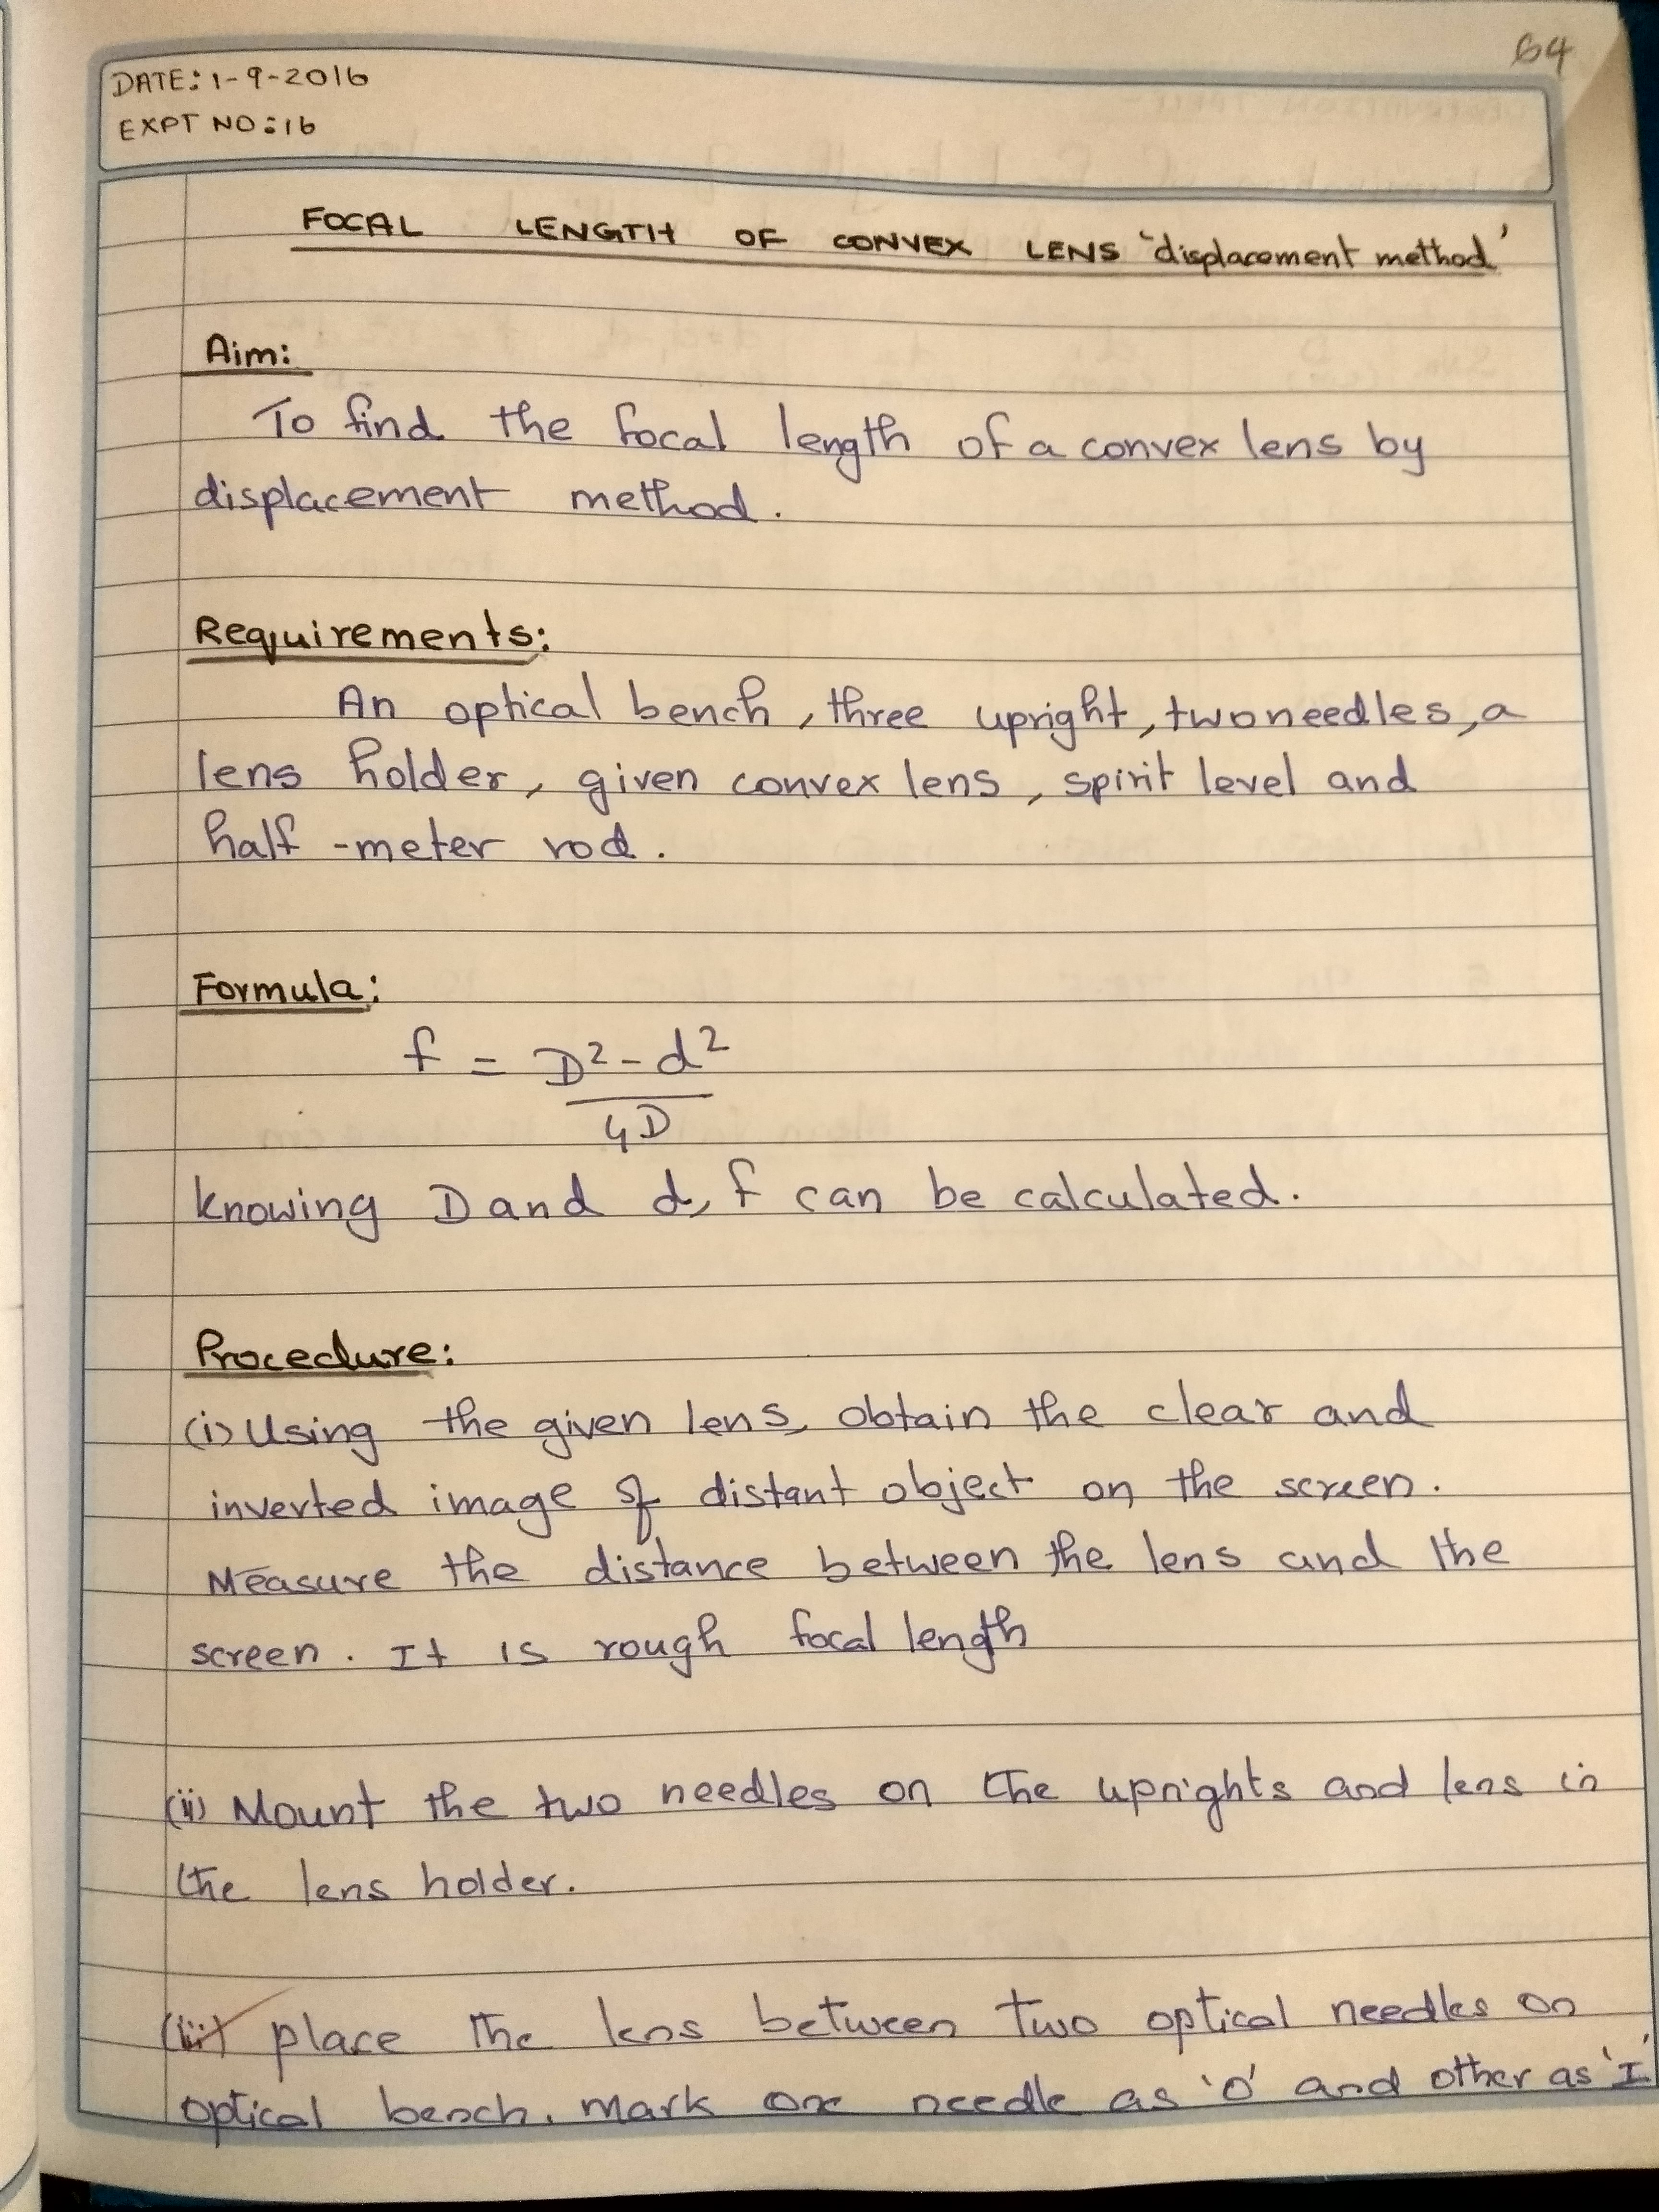 64
DATE: 1-9-2016
EXPT NO: 16
FOCAL LENGTH OF CONVEX LENS 'displacement method'
Aim:
To find the focal length of a convex lens by
displacement method.
Requirements:
An optical bench, three upright, two needles, a
lens holder, given convex lens, spirit level and
half-meter rod.
Formula:
f = D² - d²
4D
knowing D and d, f can be calculated.
Procedure:
(i) Using the given lens, obtain the clear and
inverted image of distant object on the screen.
Measure the distance between the lens and the
screen. It is rough focal length
(ii) Mount the two needles on the uprights and lens in
the lens holder.
(iii) place the lens between two optical needles on
optical bench. mark one needle as 'O' and other as 'I'